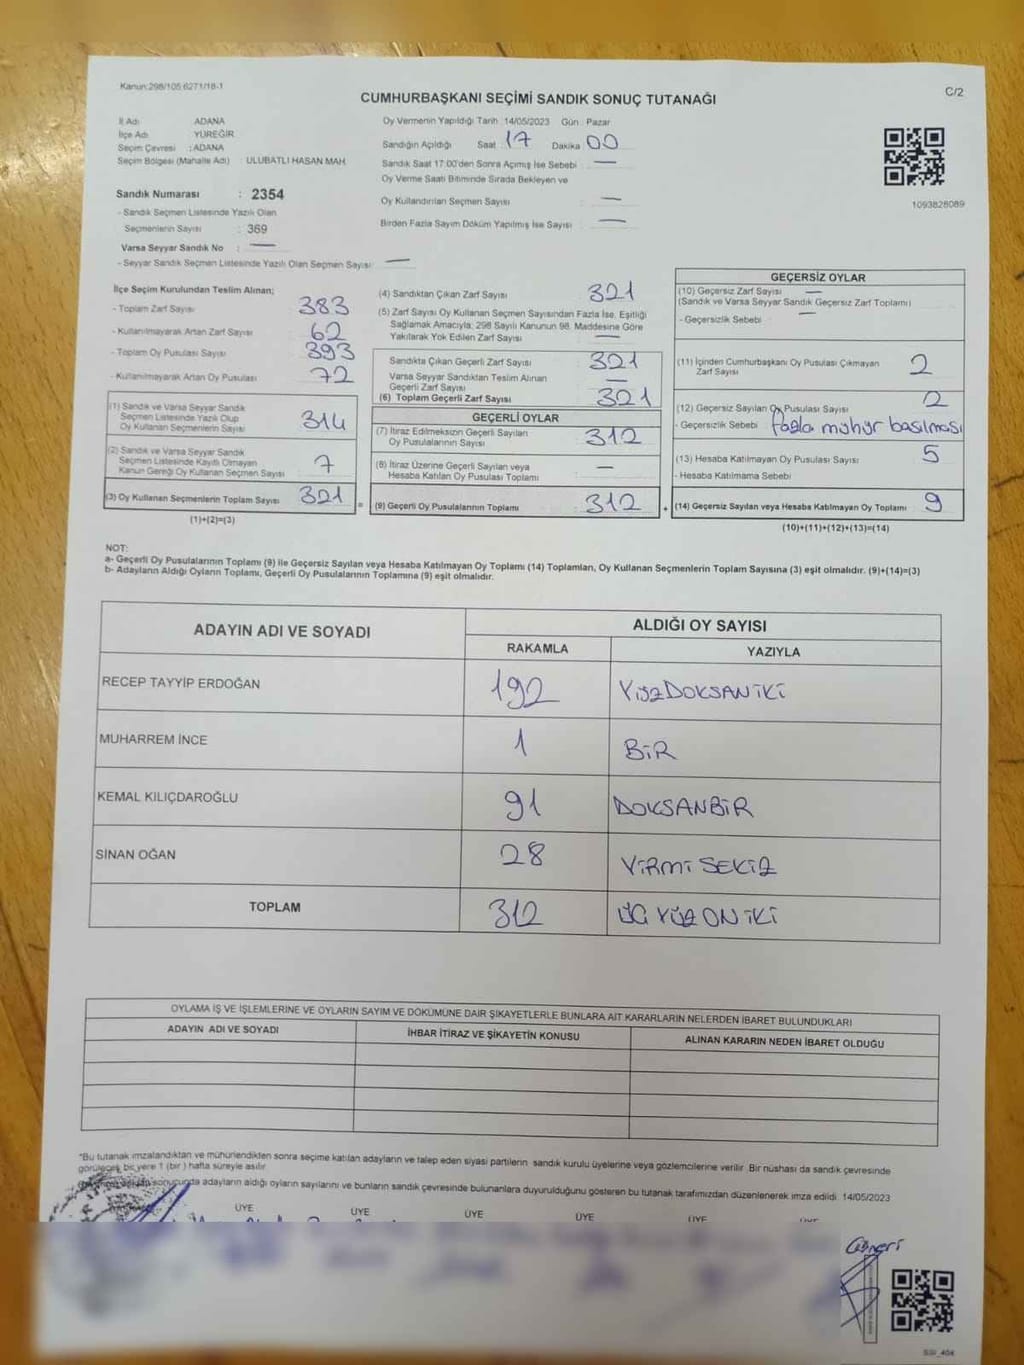 Kanun:298/105 6271/18-1
C/2
CUMHURBAŞKANI SEÇİMİ SANDIK SONUÇ TUTANAĞI
İl Adı ADANA
İlçe Adı YÜREĞİR
Seçim Çevresi : ADANA
Seçim Bölgesi (Mahalle Adı) : ULUBATLI HASAN MAH.
Sandık Numarası : 2354
- Sandık Seçmen Listesinde Yazılı Olan
Seçmenlerin Sayısı : 369
Varsa Seyyar Sandık No : —
- Seyyar Sandık Seçmen Listesinde Yazılı Olan Seçmen Sayısı: —
Oy Vermenin Yapıldığı Tarih :14/05/2023 Gün : Pazar
Sandığın Açıldığı Saat : 17 Dakika : 00
Sandık Saat 17:00'den Sonra Açımış İse Sebebi : —
Oy Verme Saati Bitiminde Sırada Bekleyen ve
Oy Kullandırılan Seçmen Sayısı : —
Birden Fazla Sayım Döküm Yapılmış İse Sayısı : —
1093828089
İlçe Seçim Kurulundan Teslim Alınan;
- Toplam Zarf Sayısı : 383
- Kullanılmayarak Artan Zarf Sayısı : 62
- Toplam Oy Pusulası Sayısı : 393
- Kullanılmayarak Artan Oy Pusulası : 72
(1) Sandık ve Varsa Seyyar Sandık
Seçmen Listesinde Yazılı Olup
Oy Kullanan Seçmenlerin Sayısı : 314
(2) Sandık ve Varsa Seyyar Sandık
Seçmen Listesinde Kayıtlı Olmayan
Kanun Gereği Oy Kullanan Seçmen Sayısı : 7
(3) Oy Kullanan Seçmenlerin Toplam Sayısı : 321
(1)+(2)=(3)
(4) Sandıktan Çıkan Zarf Sayısı : 321
(5) Zarf Sayısı Oy Kullanan Seçmen Sayısından Fazla İse, Eşitliği
Sağlamak Amacıyla; 298 Sayılı Kanunun 98. Maddesine Göre
Yakılarak Yok Edilen Zarf Sayısı : —
Sandıkta Çıkan Geçerli Zarf Sayısı : 321
Varsa Seyyar Sandıktan Teslim Alınan
Geçerli Zarf Sayısı : —
(6) Toplam Geçerli Zarf Sayısı : 321
GEÇERLİ OYLAR
(7) İtiraz Edilmeksizin Geçerli Sayılan
Oy Pusulalarının Sayısı : 312
(8) İtiraz Üzerine Geçerli Sayılan veya
Hesaba Katılan Oy Pusulası Toplamı : —
= (9) Geçerli Oy Pusulalarının Toplamı : 312
GEÇERSİZ OYLAR
(10) Geçersiz Zarf Sayısı : —
(Sandık ve Varsa Seyyar Sandık Geçersiz Zarf Toplamı)
- Geçersizlik Sebebi : —
(11) İçinden Cumhurbaşkanı Oy Pusulası Çıkmayan
Zarf Sayısı : 2
(12) Geçersiz Sayılan Oy Pusulası Sayısı : 2
- Geçersizlik Sebebi : fazla mühür basılması
(13) Hesaba Katılmayan Oy Pusulası Sayısı : 5
- Hesaba Katılmama Sebebi
+ (14) Geçersiz Sayılan veya Hesaba Katılmayan Oy Toplamı : 9
(10)+(11)+(12)+(13)=(14)
NOT:
a- Geçerli Oy Pusulalarının Toplamı (9) ile Geçersiz Sayılan veya Hesaba Katılmayan Oy Toplamı (14) Toplamları, Oy Kullanan Seçmenlerin Toplam Sayısına (3) eşit olmalıdır. (9)+(14)=(3)
b- Adayların Aldığı Oyların Toplamı, Geçerli Oy Pusulalarının Toplamına (9) eşit olmalıdır.
ADAYIN ADI VE SOYADI
ALDIĞI OY SAYISI
RAKAMLA YAZIYLA
RECEP TAYYİP ERDOĞAN 192 YÜZDOKSANİKİ
MUHARREM İNCE 1 BİR
KEMAL KILIÇDAROĞLU 91 DOKSANBİR
SİNAN OĞAN 28 YİRMİ SEKİZ
TOPLAM 312 ÜÇ YÜZ ON İKİ
OYLAMA İŞ VE İŞLEMLERİNE VE OYLARIN SAYIM VE DÖKÜMÜNE DAİR ŞİKAYETLERLE BUNLARA AİT KARARLARIN NELERDEN İBARET BULUNDUKLARI
ADAYIN ADI VE SOYADI İHBAR İTİRAZ VE ŞİKAYETİN KONUSU ALINAN KARARIN NEDEN İBARET OLDUĞU
*Bu tutanak imzalandıktan ve mühürlendikten sonra seçime katılan adayların ve talep eden siyasi partilerin sandık kurulu üyelerine veya gözlemcilerine verilir. Bir nüshası da sandık çevresinde
görülecek bir yere 1 (bir) hafta süreyle asılır.
sonucunda adayların aldığı oyların sayılarını ve bunların sandık çevresinde bulunanlara duyurulduğunu gösteren bu tutanak tarafımızdan düzenlenerek imza edildi. 14/05/2023
ÜYE ÜYE ÜYE ÜYE ÜYE ÜYE